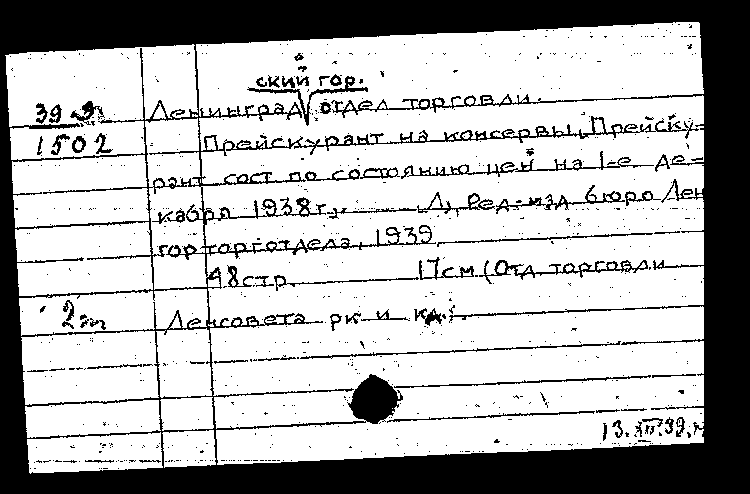 ский гор.
39 Л Ленинград отдел торговли.
1502 Прейскурант на консервы. Прейску-
рант сост по состоянию цен на 1-е де-
кабря 1938 г. Л, Ред.-изд бюро Лен
горторготдела, 1939.
48 стр. 17 см (Отд торговли
2 эк Ленсовета рк и кд.).
13.XII.39.